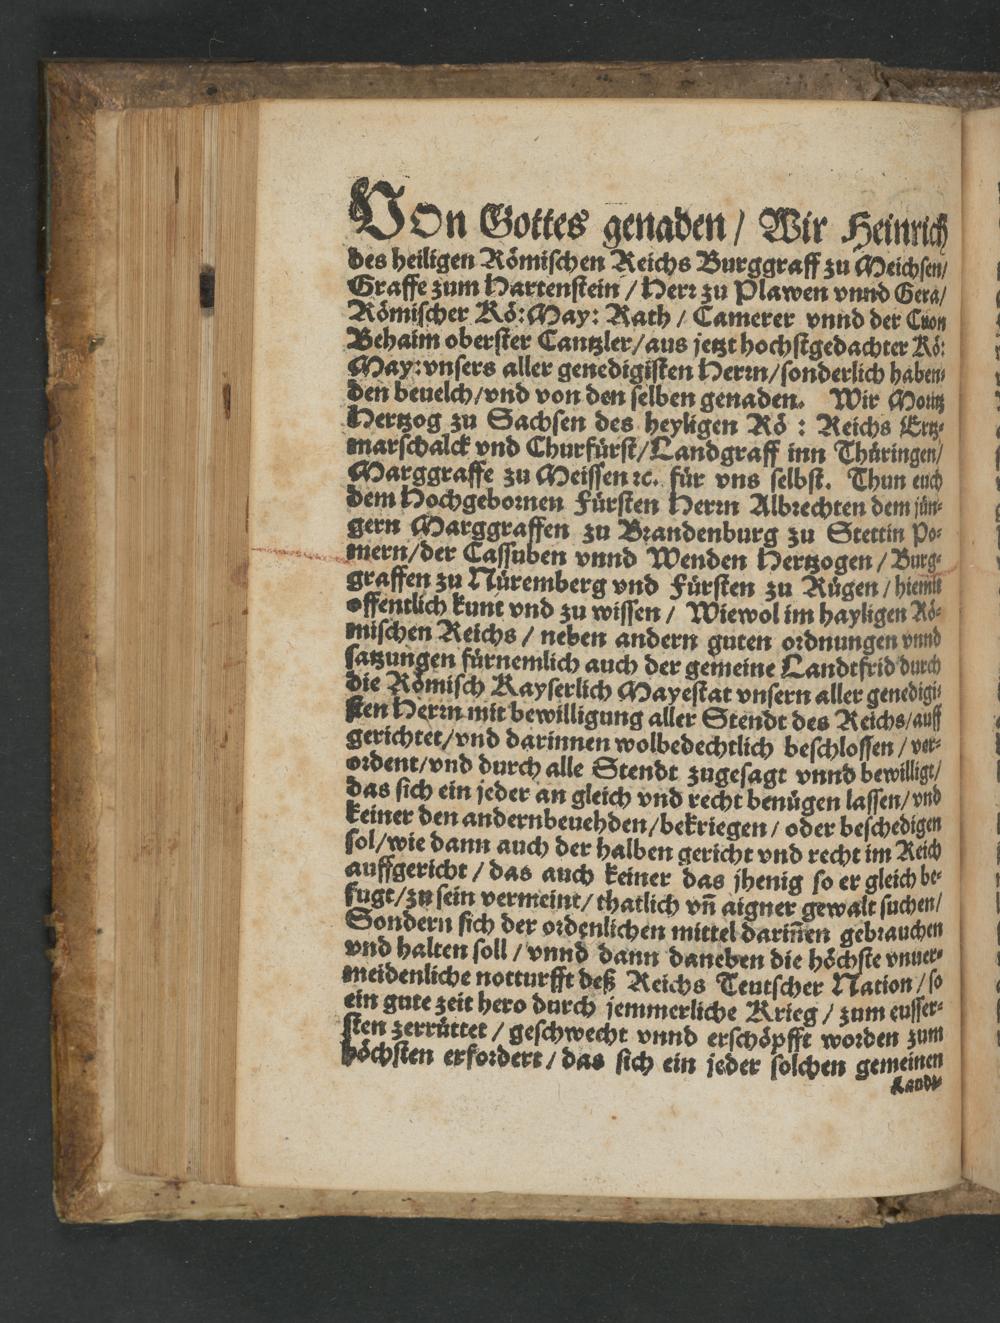 VOn Gottes genaden / Wir Heinrich
des heiligen Römischen Reichs Burggraff zu Meichsen/
Graffe zum Hartenstein / Herr zu Plawen vnnd Gera/
Römischer Kö: May: Rath / Camerer vnnd der Cron
Behaim oberster Cantzler/aus jetzt hochstgedachter Kö:
May: vnsers aller genedigisten Herrn/sonderlich haben⸗
den beuelch/vnd von den selben genaden. Wir Moritz
Hertzog zu Sachsen des heyligen Rö : Reichs Ertz⸗
marschalck vnd Churfürst/Landgraff inn Thüringen/
Marggraffe zu Meissen ꝛc. für vns selbst. Thun euch
dem Hochgebornen Fürsten Herrn Albrechten dem jün⸗
gern Marggraffen zu Brandenburg zu Stettin Po⸗
mern/der Cassuben vnnd Wenden Hertzogen / Burg⸗
graffen zu Nüremberg vnd Fürsten zu Rügen / hiemit
offentlich kunt vnd zu wissen / Wiewol im hayligen Rö⸗
mischen Reichs / neben andern guten ordnungen vnnd
satzungen fürnemlich auch der gemeine Landtfrid durch
die Römisch Kayserlich Mayestat vnsern aller genedigi⸗
sten Herrn mit bewilligung aller Stendt des Reichs/auff
gerichtet/vnd darinnen wolbedechtlich beschlossen / ver⸗
ordent/vnd durch alle Stendt zugesagt vnnd bewilligt/
das sich ein jeder an gleich vnd recht benügen lassen/vnd
keiner den andern beuehden/bekriegen / oder beschedigen
sol/wie dann auch der halben gericht vnd recht im Reich
auffgericht / das auch keiner das jhenig so er gleich be⸗
fugt/zu sein vermeint/thatlich vn̄ aigner gewalt suchen/
Sondern sich der ordenlichen mittel darin̄en gebrauchen
vnd halten soll / vnnd dann daneben die höchste vnuer⸗
meidenliche notturfft deß Reichs Teutscher Nation / so
ein gute zeit hero durch jemmerliche Krieg / zum eusser⸗
sten zerrüttet / geschwecht vnnd erschöpfft worden zum
höchsten erfordert / das sich ein jeder solchen gemeinen
Landt⸗